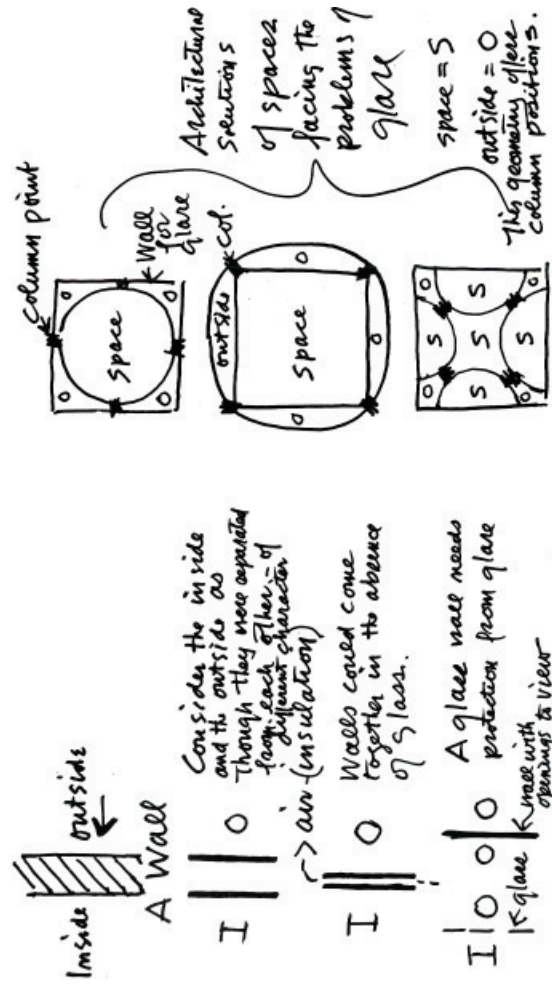 Inside
outside
A Wall
I
O
Consider the inside
and the outside as
Though they were separated
from each other - of
different character
→ air (insulation)
I
O
Walls could come
together in the absence
of glass.
I
O
O
O
A glass wall needs
protection from glare
glass
wall with
openings to view
column point
space
O
O
O
O
Wall
for
glare
outside
col.
space
O
O
O
S
S
S
S
S
O
O
O
O
Architectural
solutions
of spaces
facing the
problems of
glare
space = S
outside = O
This geometry offers
column positions.